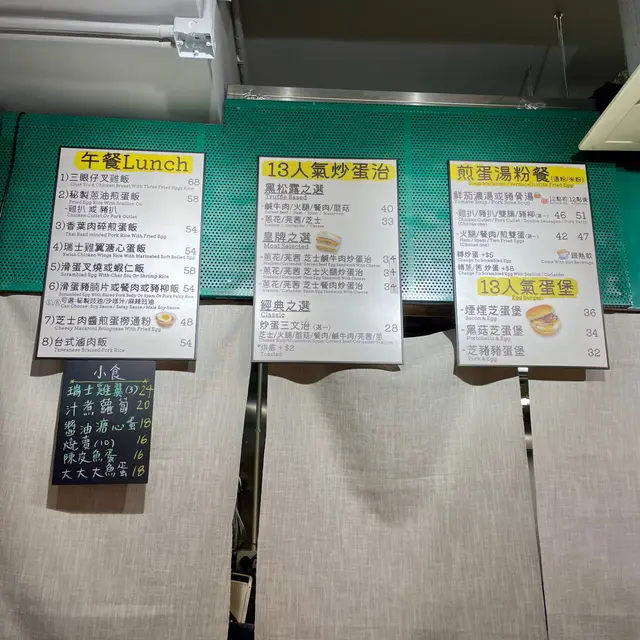 午餐Lunch
1)三眼仔叉雞飯 68
Char Siu & Chicken Breast With Three Fried Eggs Rice
2)秘製蔥油煎蛋飯 58
Fried Egg Rice With Scallion Oil
-雞扒 或 豬扒
Chicken Cutlet Or Pork Cutlet
3)香葉肉碎煎蛋飯 54
Thai Basil Minced Pork Rice With Fried Egg
4)瑞士雞翼溏心蛋飯 54
Swiss Chicken Wings Rice With Marinated Soft Boiled Egg
5)滑蛋叉燒或蝦仁飯 58
Scrambled Egg With Char Siu Or Shrimp Rice
6)滑蛋豬腩片或餐肉或豬柳飯 54
7)芝士肉醬煎蛋撈通粉 48
Cheesy Macaroni Bolognese With Fried Egg
8)台式滷肉飯 54
Taiwanese Braised Pork Rice
小食
瑞士雞翼(3) 24
汁煮蘿蔔 20
醬油溏心蛋 18
燒賣(10) 16
陳皮魚蛋 16
大大大魚蛋 18
13人氣炒蛋治
黑松露之選
Truffle Based
-鹹牛肉/火腿/餐肉/蘑菇 40
-蔥花/芫茜/芝士 33
皇牌之選
Most Selected
-蔥花/芫茜 芝士鹹牛肉炒蛋治 34
-蔥花/芫茜 芝士火腿炒蛋治 34
-蔥花/芫茜 芝士餐肉炒蛋治 34
經典之選
Classic
炒蛋三文治(選一) 28
-芝士/火腿/蘑菇/餐肉/鹹牛肉/芫茜/蔥
*烘底 + $2
Toasted
煎蛋湯粉餐(通粉/米粉)
Soup Macaroni / Vermicelli With Fried Egg
鮮茄濃湯或豬骨湯 12點前 12點後
Tomato Soup / Pork Bone Soup
-雞扒/豬扒/雙腸/豬柳(選一) 46 51
-火腿/餐肉/煎雙蛋(選一) 42 47
Ham / Spam / Two Fried Eggs
轉炒蛋 +$7 跟熱飲
轉蔥/茜 炒蛋 +$8
13人氣蛋堡
Egg Burger
-煙煙芝蛋堡 36
Bacon & Egg
-黑菇芝蛋堡 34
Portobello & Egg
-芝豬豬蛋堡 32
Pork & Egg